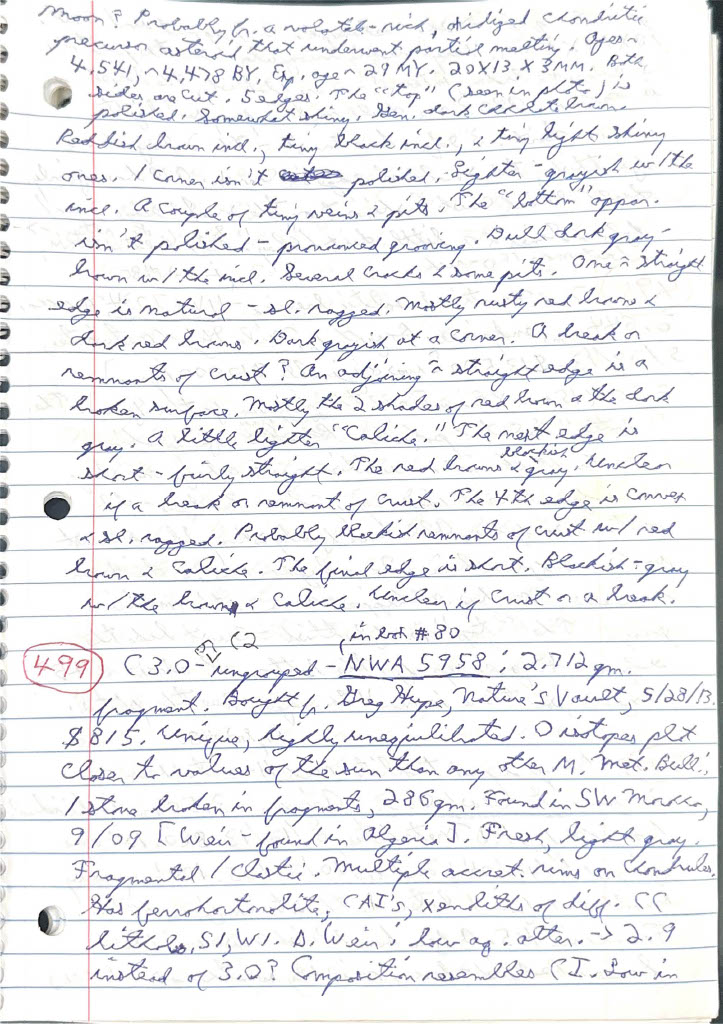 Moon? Probably fr. a volatile-rich, oxidized chondritic
precursor asteroid that underwent partial melting. Ages ~
4.541, ~4.478 BY. Exp. age ~ 29 MY. 20X13X3MM. Both
sides are cut. 5 edges. The "top" (seen in photo) is
polished. Somewhat shiny. Gen. dark chocolate brown.
Reddish brown incl., tiny black incl., & tiny light shiny
ones. 1 corner isn't polished. Lighter - grayish w/ the
incl. A couple of tiny veins & pits. The "bottom" appar.
isn't polished - pronounced grooving. Dull dark gray-
brown w/ the incl. Several cracks & some pits. One ~ straight
edge is natural - sl. ragged. Mostly rusty red brown &
dark red brown. Dark grayish at a corner. A break or
remnants of crust? An adjoining ~ straight edge is a
broken surface. Mostly the 2 shades of red brown & the dark
gray. A little lighter "Caliche." The next edge is
short - fairly straight. The red browns & blackish gray. Unclear
if a break or remnant of crust. The 4th edge is convex
& sl. ragged. Probably blackish remnants of crust w/ red
brown & Caliche. The final edge is short. Blackish-gray
w/ the brown & Caliche. Unclear if crust or a break.
499 C3.0- or C2 ungrouped - NWA 5958 (in box #80); 2.712 gm.
fragment. Bought fr. Greg Hupe, Nature's Vault, 5/28/13.
$815. Unique, highly unequilibrated. O isotopes plot
closer to values of the sun than any other M. Met. Bull.:
1 stone broken in fragments, 286 gm. Found in SW Morocco,
9/09 [Weir - found in Algeria]. Fresh, light gray.
Fragmental / Clastic. Multiple accret. rims on chondrules.
Has ferrohortonolite, CAI's, xenoliths of diff. CC
lithols. S1, W1. D. Weir: low aq. alter. -> 2.9
instead of 3.0? Composition resembles CI. Low in